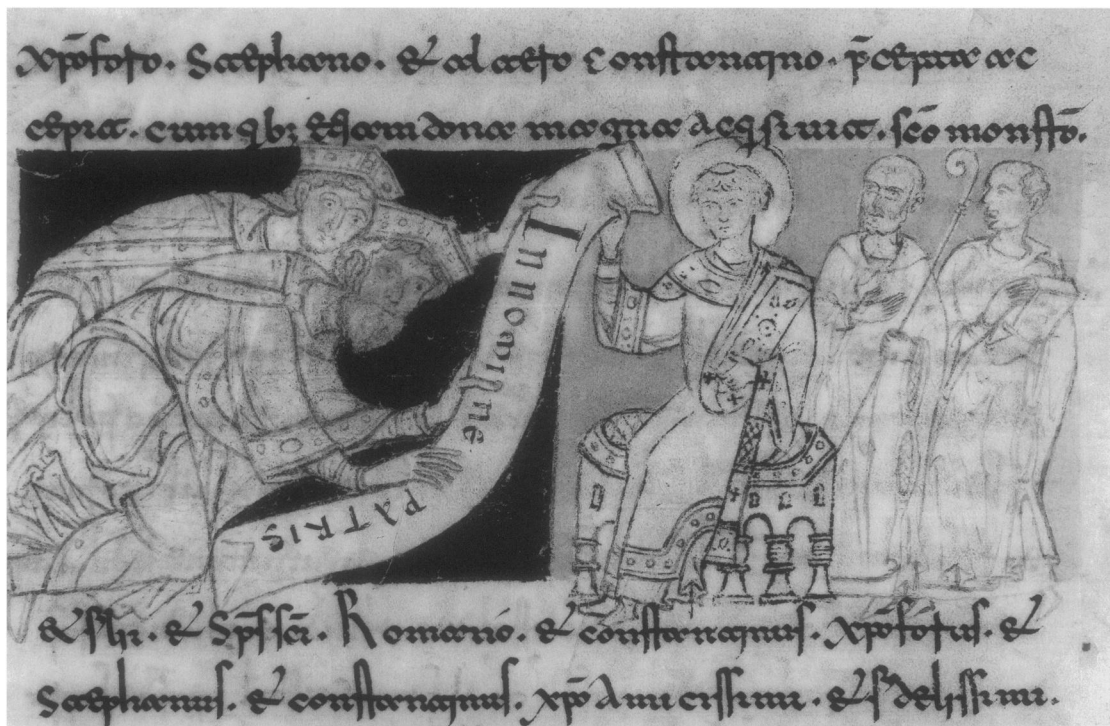 Xp̄oforo. Stephano. & altero Constantino. p̄cepta ac
cepit. cum qb; &iam dona magna Acqsiuit. scō monstō.
IN NOMINE PATRIS
& filii. & Sp̄s scī. Romano. & constantinus. xp̄oforus. &
Stephanus. & constantinus. xp̄o Amicissimi. & fidelissimi.